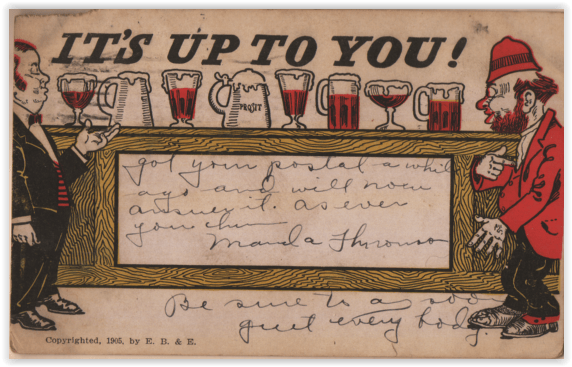 IT'S UP TO YOU!
PROSIT
got your postal a whil
ago and will now
answer it. as ever
your chum
Manda Thronson
Be sure to a
guet every body.
Copyrighted, 1905, by E. B. & E.